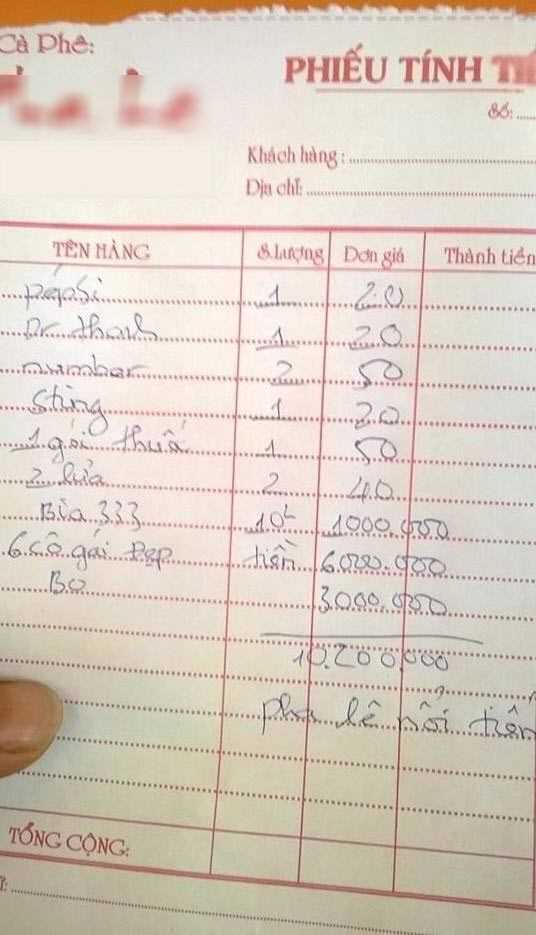 Cà Phê:
PHIẾU TÍNH
Số:
Khách hàng:
Địa chỉ:
TÊN HÀNG S.Lượng Đơn giá Thành tiền
pepsi 1 20
Dr thanh 1 20
number 2 50
Sting 1 20
1 gói thuố 1 50
2 lửa 2 40
Bia 333 10L 1000.000
6 cô gái Đẹp tiền 6.000.000
Bo 3.000.000
10.200.000
pha lê nổi tiến
TỔNG CỘNG: